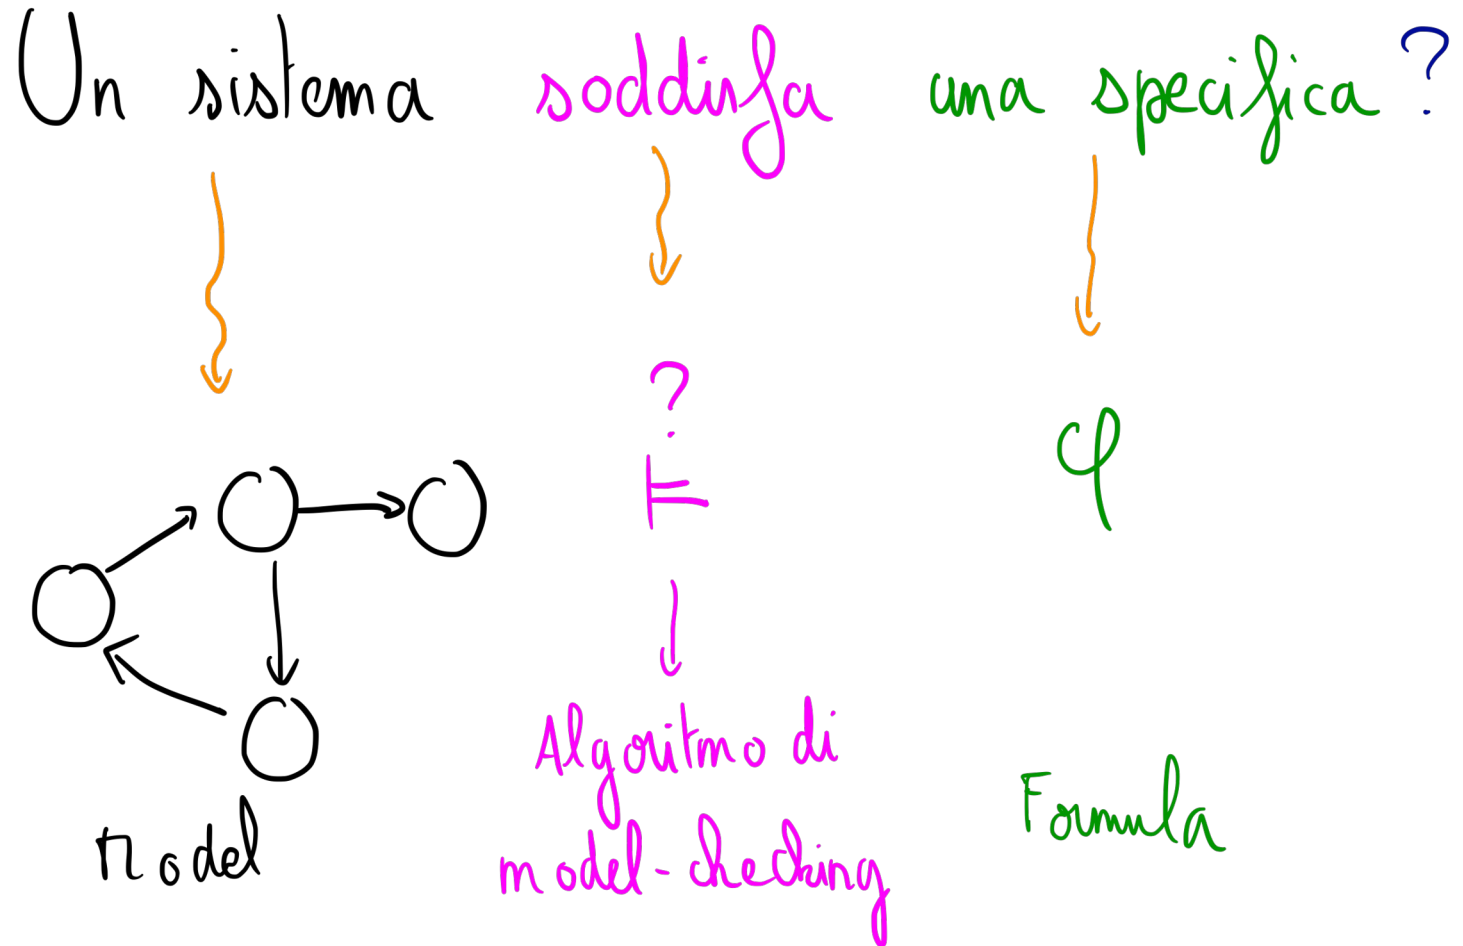 Un sistema soddisfa una specifica ?
?
⊨
φ
Algoritmo di
model-checking
Model
Formula